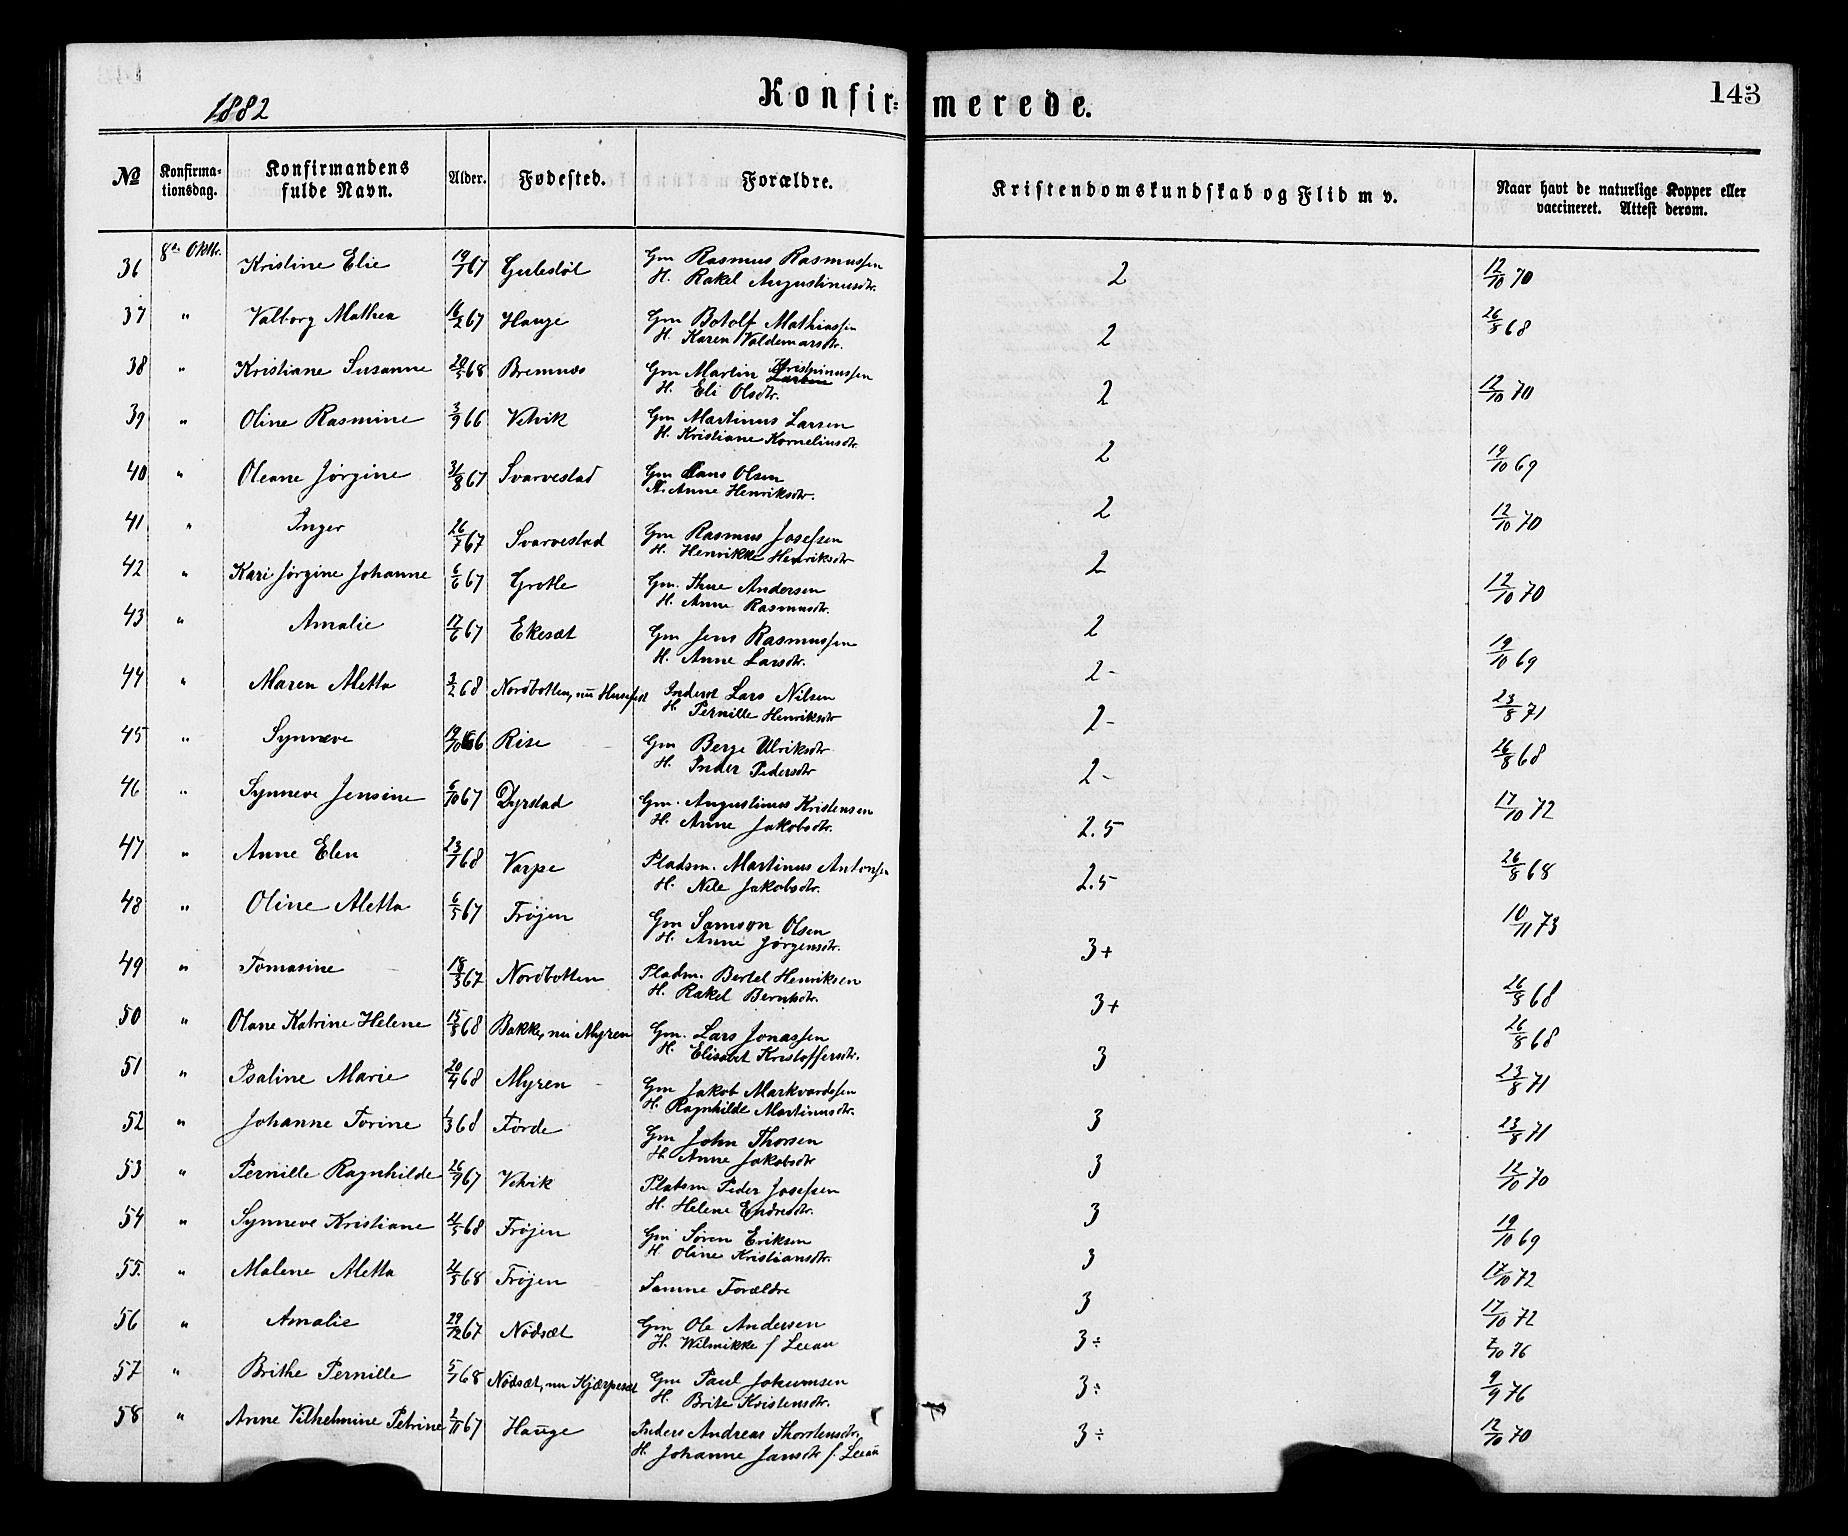 1882
Konfir-merede.
143
No
Konfirma-tionsdag.
Konfirmandens fulde Navn.
Alder.
Fødested.
Forældre.
Kristendomskundskab og Flid m v.
Naar havt de naturlige Kopper eller vaccineret. Attest derom.
36 8de Oktbr. Kristine Elie 19/7 67 Gulestøl Gm Rasmus Rasmussen 2 12/10 70
H. Rakel Augustinusdtr.
37 " Valborg Mathea 16/2 67 Hauge Gm Botolf Mathiassen 2 26/8 68
H. Karen Valdemarsdtr.
38 " Kristiane Susanne 20/5 68 Bremnes Gm Martin Krispinussen 2 12/10 70
H. Eli Olsdtr.
39 " Oline Rasmine 3/9 66 Vetvik Gm Martinus Larsen 2 19/10 69
H. Kristiane Korneliusdtr.
40 " Oleane Jørgine 31/8 67 Svarvestad Gm Claus Olsen 2 12/10 70
H. Anne Henriksdtr.
41 " Inger 26/7 67 Svarvestad Gm Rasmus Josefsen 2 12/10 70
H. Henrikke Henriksdtr
42 " Kari Jørgine Johanne 6/6 67 Grotle Gm. Thue Andersen 2 19/10 69
H. Anne Rasmusdtr.
43 " Amalie 17/6 67 Ekesæt Gm Jens Rasmussen 2- 23/8 71
H. Anne Larsdtr.
44 " Maren Aletta 3/2 68 Nordbotten, nu Inderst Lars Nilsen 2- 26/8 68
H. Pernille Henriksdtr
45 " Synneve 19/10 66 Rise Gm Berge Ulriksdtr 2- 17/10 72
H. Inger Pedersdtr
46 " Synneve Jensine 6/10 67 Dyrstad Gm. Augustinus Kristensen 2.5 26/8 68
H. Anne Jakobsdtr.
47 " Anne Elen 23/1 68 Varpe Pladsm. Martinus Antonsen 2.5 10/11 73
H. Nile Jakobsdtr.
48 " Oline Aletta 6/5 67 Frøjen Gm Samson Olsen 3+ 26/8 68
H. Anne Jørgensdtr.
49 " Tomasine 18/3 67 Nordbotten Pladsm. Bertel Henriksen 3+ 26/8 68
H. Rakel Berntsdtr.
50 " Olane Katrine Helene 15/3 68 Bakke, nu Myren Gm. Lars Jonassen 3 23/8 71
H. Elisabet Kristoffersdtr.
51 " Psaline Marie 20/4 68 Myren Gm Jakob Markvardsen 3 23/8 71
H. Ragnhilde Martinusdtr.
52 " Johanne Torine 1/3 68 Førde Gm John Thorsen 3 12/10 70
H. Anne Jakobsdtr
53 " Pernille Ragnhilde 26/9 67 Vetvik Pladsm Peder Josefsen 3 19/10 69
H. Helene Endresdtr.
54 " Synneve Kristiane 21/5 68 Frøjen Gm Søren Eriksen 3 17/10 72
H. Oline Kristiansdtr.
55. " Malene Aletta 21/5 68 Frøjen Samme Forældre 3 17/10 72
56 " Amalie 29/12 67 Nødsæt Gm Ole Andersen 3÷ 7/10 76
H. Wilmikke f Leean
57 " Brithe Pernille 5/7 68 Nødsæt, nu Kjærpesæt Gm Paul Jokumsen 3÷ 9/9 76
H. Brite Kristensdtr.
58 " Anne Vilhelmine Petrine 2/11 67 Hauge Inders Andreas Thorstensdtr. 3÷ 12/10 70
H. Johanne Jansdtr f. Leean